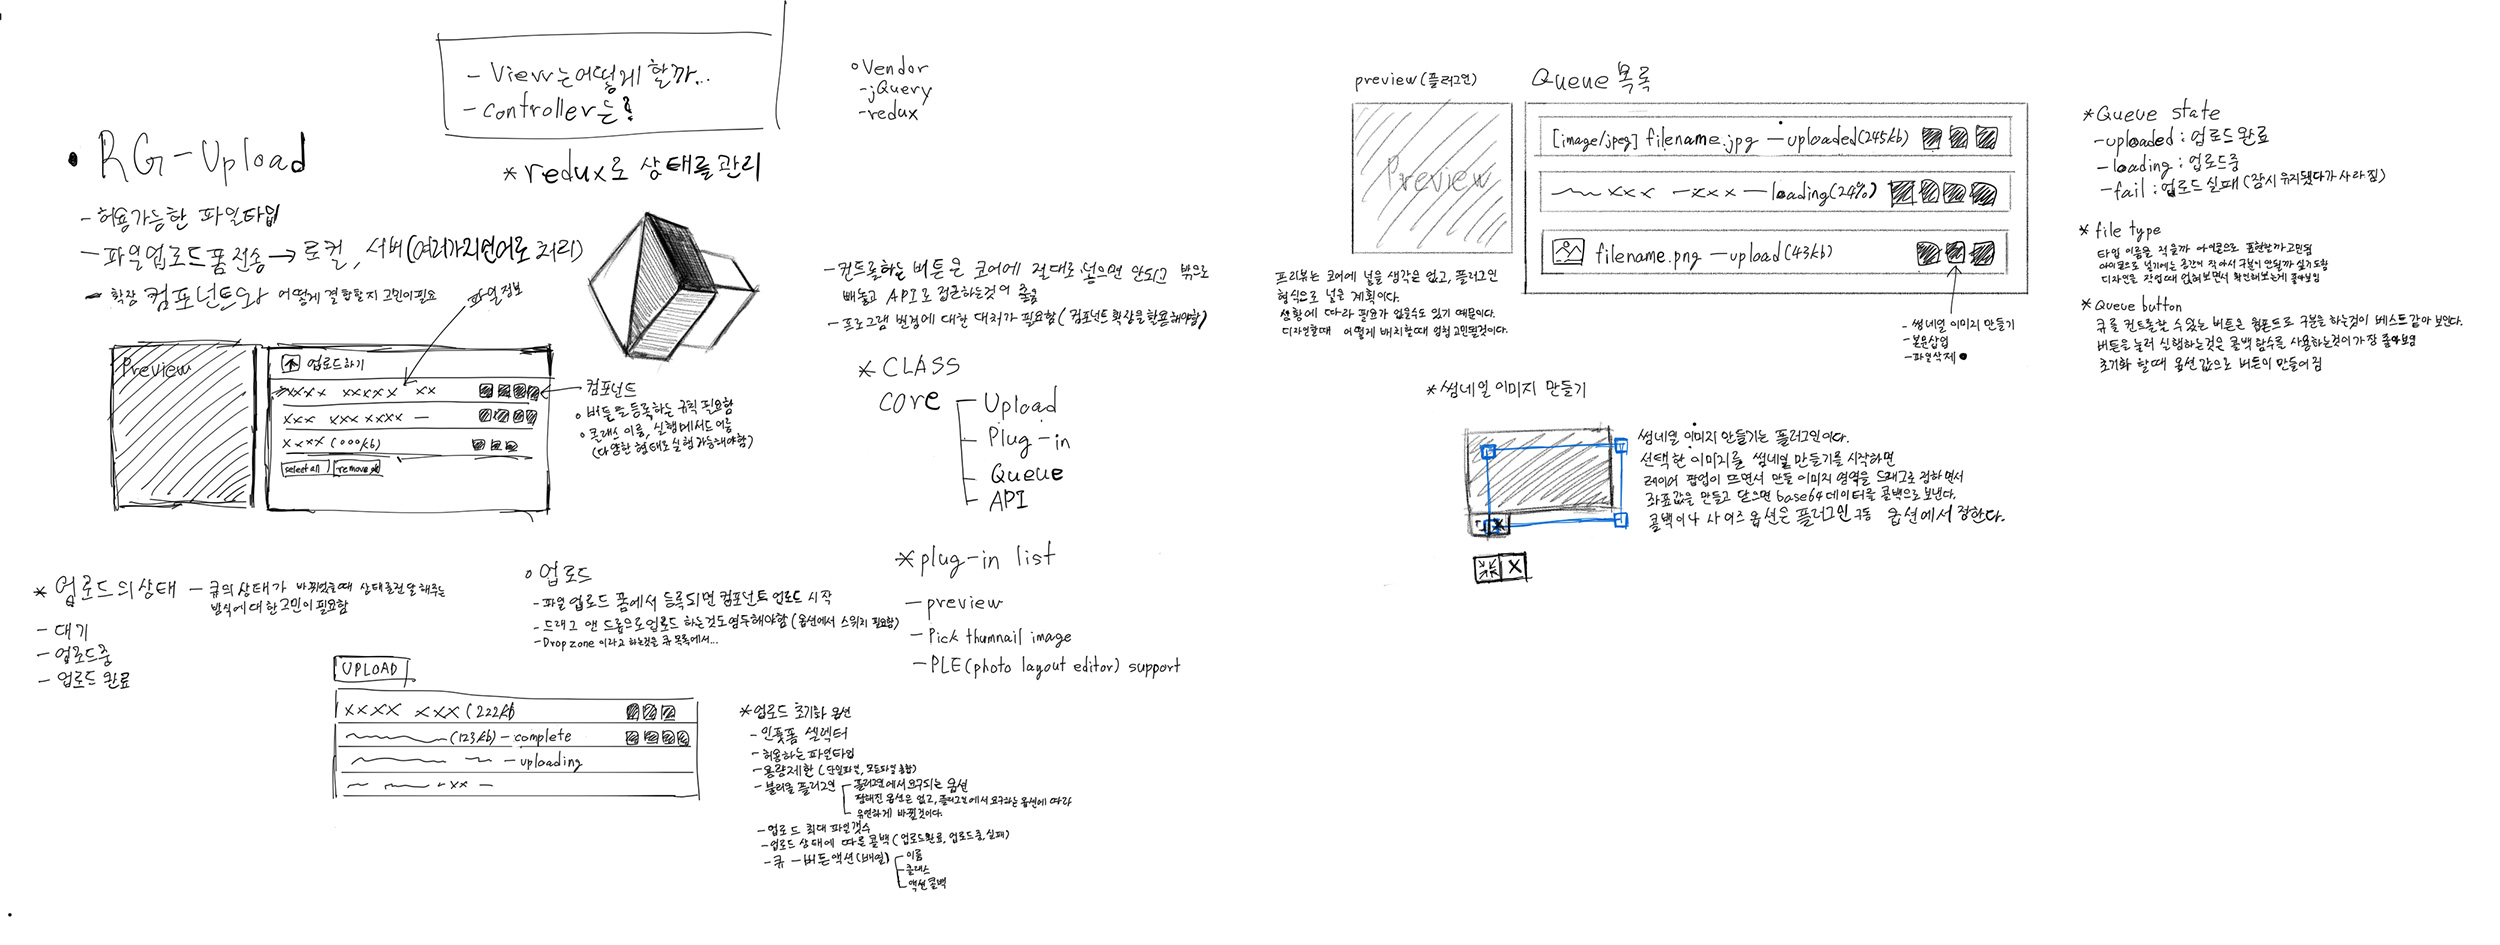 - View는 어떻게 할까...
- controller는?
• RG-Upload
* redux로 상태를 관리
- 허용가능한 파일타입
- 파일업로드폼 전송 → 로컬, 서버(여러가지언어로 처리)
- 확장 컴포넌트와 어떻게 결합할지 고민이필요
파일정보
Preview
업로드하기
xxxx xxxxx xx
xxx xxx xxxx —
xxxx (000kb)
select all
remove
컴포넌트
o 버튼을 등록하는 규칙 필요함
o 클래스 이름, 실행메서드 이름
(다양한 형태로 실행 가능해야함)
o Vendor
- jQuery
- redux
- 컨트롤하는 버튼은 코어에 절대로 넣으면 안되고 밖으로
빼놓고 API로 접근하는것이 좋음
- 프로그램 변경에 대한 대처가 필요함 (컴포넌트 확장을 활용해야함)
* CLASS
core
Upload
Plug-in
Queue
API
* plug-in list
- preview
- Pick thumnail image
- PLE(photo layout editor) support
* 업로드의 상태 - 큐의 상태가 바뀌었을때 상태를 전달해주는
방식에 대한 고민이 필요함
- 대기
- 업로드중
- 업로드 완료
o 업로드
- 파일 업로드 폼에서 등록되면 컴포넌트 업로드 시작
- 드래그 앤 드롭으로 업로드 하는것도 염두해야함 (옵션에서 스위치 필요함)
- Drop zone 이라고 하는것은 큐 목록에서...
UPLOAD
xxxx xxx (222kb
(123kb) - complete
- uploading
- xx -
* 업로드 초기화 옵션
- 인풋폼 셀렉터
- 허용하는 파일타입
- 용량제한 (단일파일, 모든파일 총합)
- 불러올 플러그인
플러그인에서 요구되는 옵션
정해진 옵션은 없고, 플러그인에서 요구하는 옵션에 따라
유연하게 바뀔것이다.
- 업로드 최대 파일갯수
- 업로드 상태에 따른 콜백 (업로드완료, 업로드중, 실패)
- 큐 - 버튼액션(배열)
이름
클래스
액션 콜백
preview(플러그인)
Preview
프리뷰는 코어에 넣을 생각은 없고, 플러그인
형식으로 넣을 계획이다.
상황에 따라 필요가 없을수도 있기 때문이다.
디자인할때 어떻게 배치할때 엄청 고민될것이다.
Queue 목록
[image/jpeg] filename.jpg — uploaded(245kb)
xxx — xxx — loading(24%)
filename.png — upload(43kb)
- 썸네일 이미지 만들기
- 본문삽입
- 파일삭제
* Queue state
- uploaded : 업로드 완료
- loading : 업로드중
- fail : 업로드 실패 (잠시 유지됐다가 사라짐)
* file type
타입 이름을 적을까 아이콘으로 표현할까 고민됨
아이콘으로 넣기에는 공간이 작아서 구분이 안될까 싶기도함
디자인을 작업때 얹혀보면서 확인해보는게 좋아보임
* Queue button
큐를 컨트롤할 수 있는 버튼은 웹폰트로 구분을 하는것이 베스트 같아 보인다.
버튼을 눌러 실행하는것은 콜백 함수를 사용하는것이 가장 좋아보임
초기화 할때 옵션값으로 버튼이 만들어짐
* 썸네일 이미지 만들기
썸네일 이미지 만들기는 플러그인이다.
선택한 이미지를 썸네일 만들기를 시작하면
레이어 팝업이 뜨면서 만들 이미지 영역을 드래그로 정하면서
좌표값을 만들고 닫으면 base64데이터를 콜백으로 보낸다.
콜백이나 사이즈 옵션은 플러그인 구동 옵션에서 정한다.
X